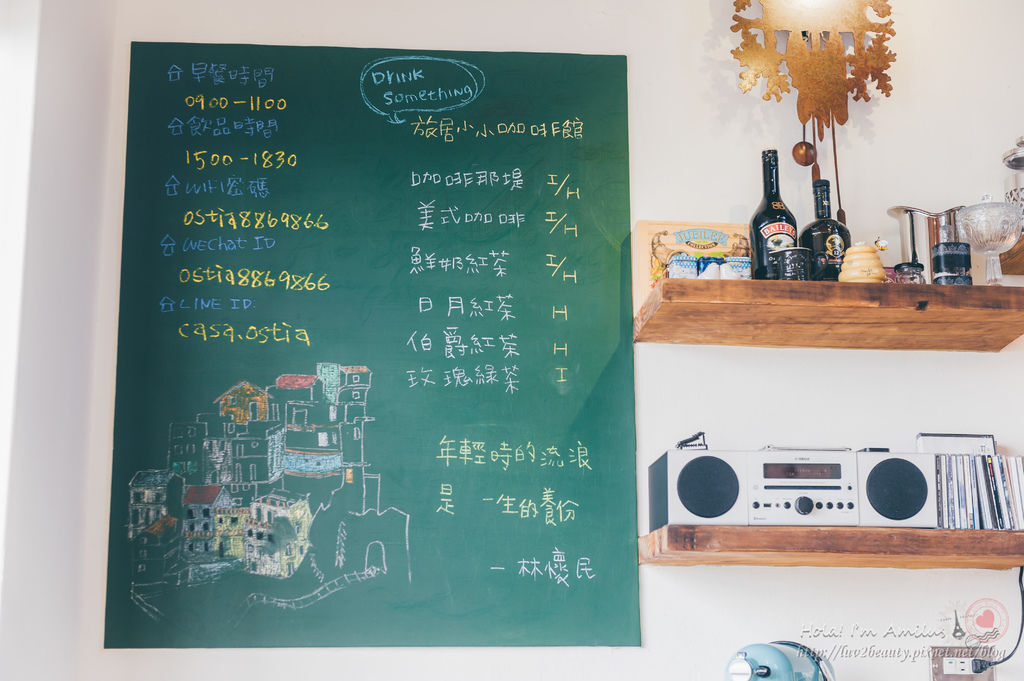 早餐時間
0900-1100
飲品時間
1500-1830
WIFI密碼
ostia8869866
WeChat ID
ostia8869866
LINE ID:
casa.ostia
Drink
Something
旅居小小咖啡館
咖啡那堤 I/H
美式咖啡 I/H
鮮奶紅茶 I/H
日月紅茶 H
伯爵紅茶 H
玫瑰綠茶 I
年輕時的流浪
是 一生的養份
— 林懷民
BAILEYS
Hola! I'm Amilus
http://luv2beauty.pixnet.net/blog